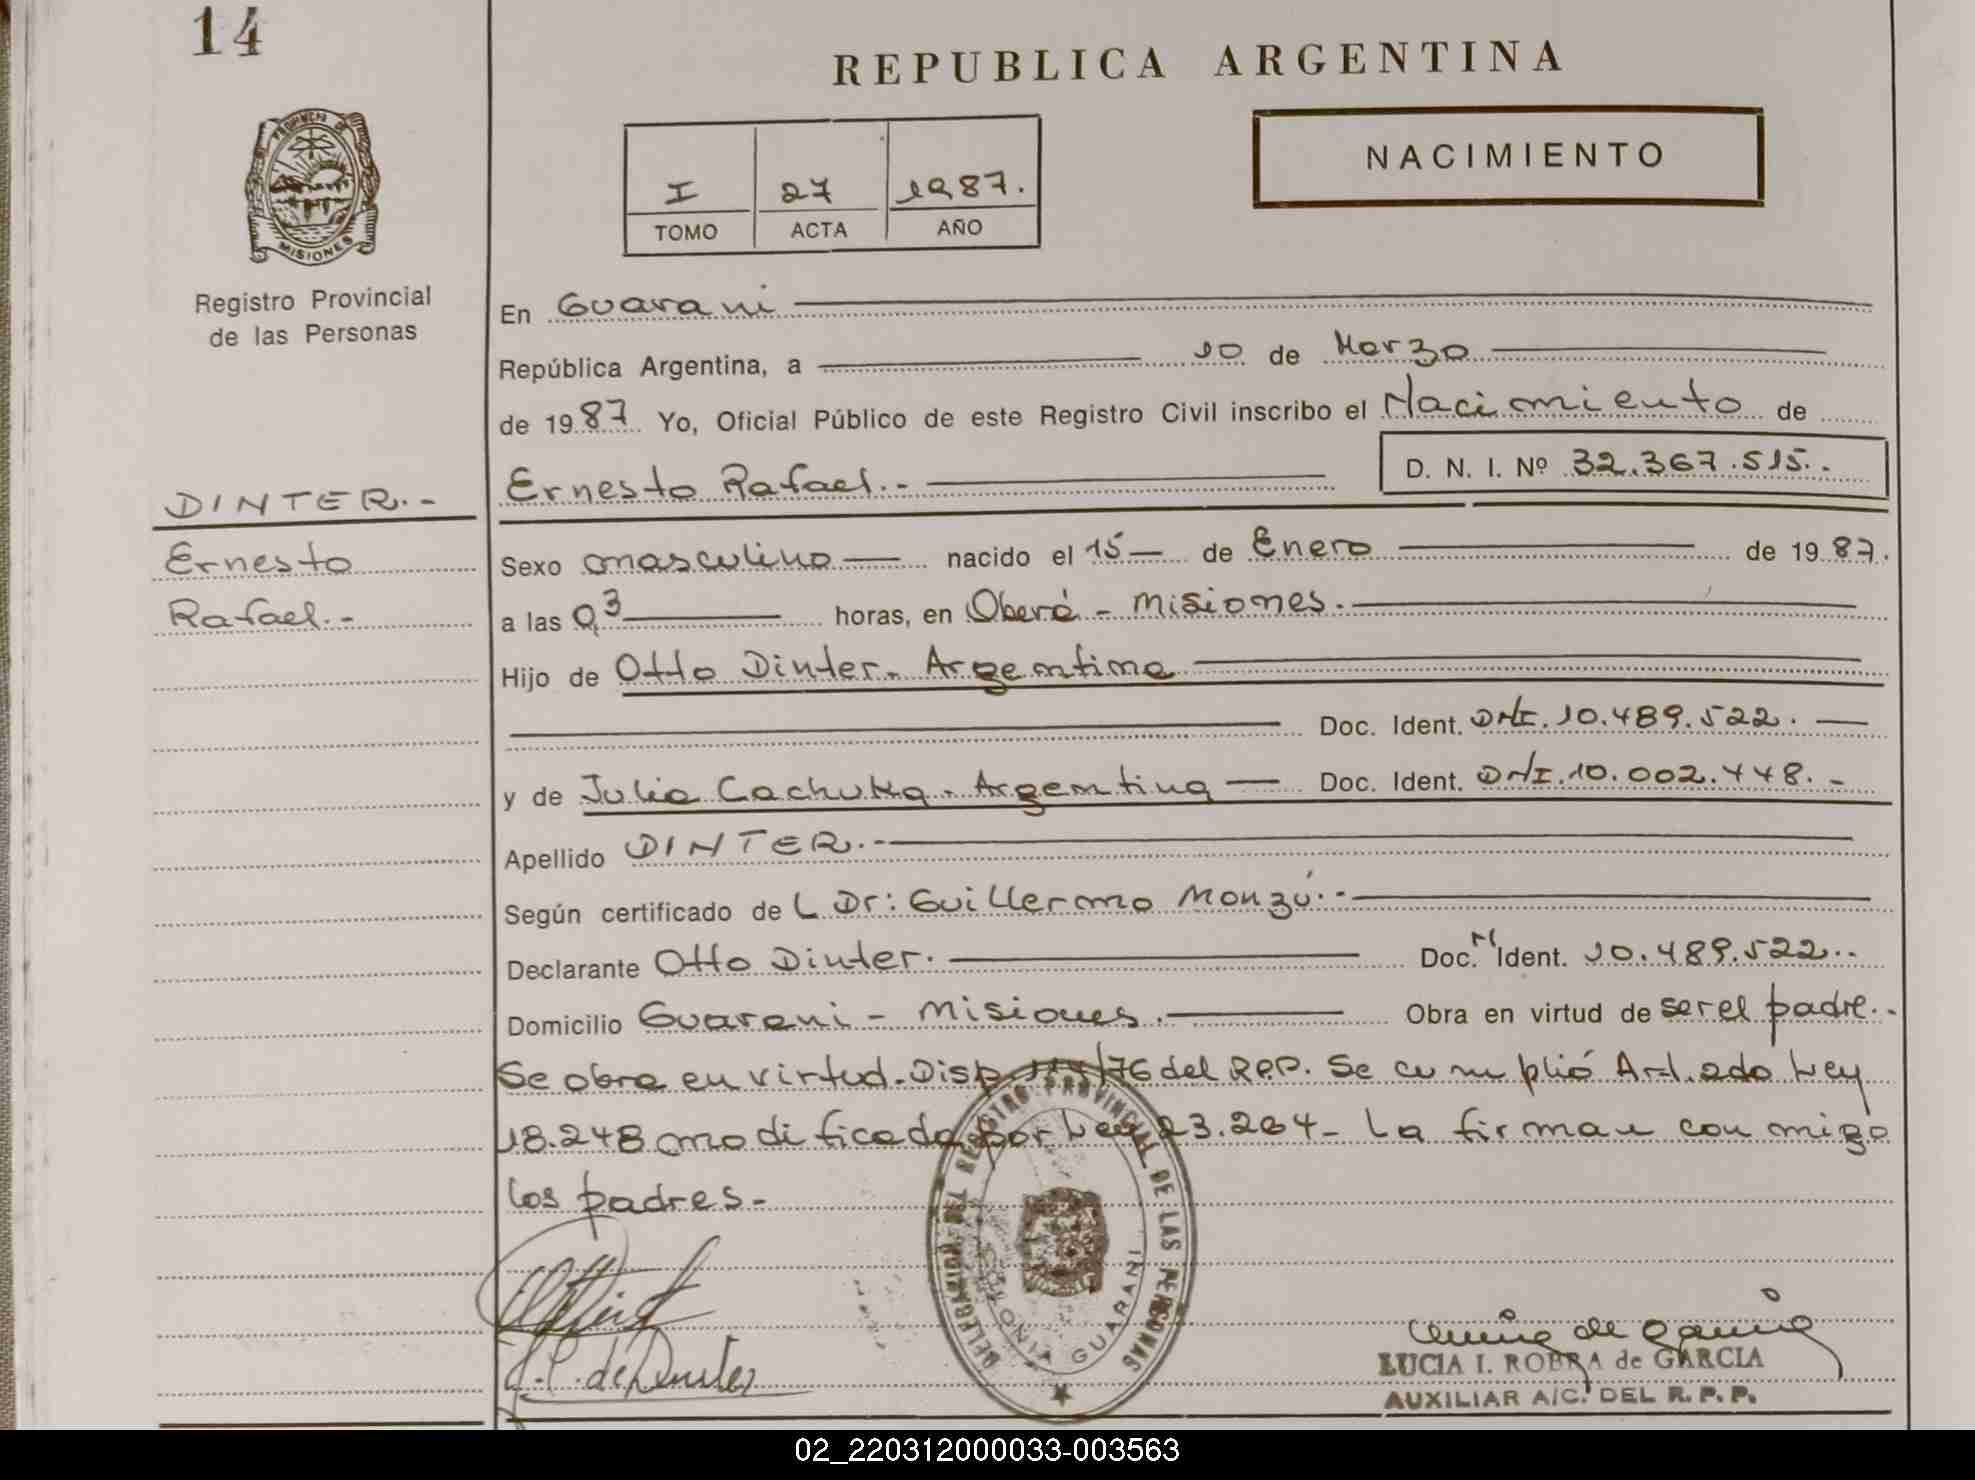 14
REPUBLICA ARGENTINA
NACIMIENTO
I 27 1987.
TOMO ACTA AÑO
PROVINCIA DE MISIONES
Registro Provincial
de las Personas
En Guarani
República Argentina, a 10 de Marzo
de 1987 Yo, Oficial Público de este Registro Civil inscribo el Nacimiento de
Ernesto Rafael.- D. N. I. Nº 32.367.515.
DINTER.-
Ernesto
Rafael.-
Sexo masculino nacido el 15 de Enero de 1987.
a las 03 horas, en Oberá - Misiones.
Hijo de Otto Dinter. Argentino
Doc. Ident. DNI. 10.489.522.
y de Julia Argentina Doc. Ident. DNI. 10.002.448.-
Apellido DINTER.-
Según certificado de L Dr: Guillermo Monzú.-
Declarante Otto Dinter. Doc. NI Ident. 10.489.522..
Domicilio Guarani - Misiones. Obra en virtud de ser el padre.-
Se obra en virtud. Disp. /76 del RPP. Se cumplió Art. 2do Ley
18.248 modificada por Ley 23.264- La firman conmigo
los padres-
DELEGACION DEL REGISTRO PROVINCIAL DE LAS PERSONAS
COLONIA GUARANI
J.C. de Dinter
LUCIA I. ROBRA de GARCIA
AUXILIAR A/C. DEL R. P. P.
02_220312000033-003563